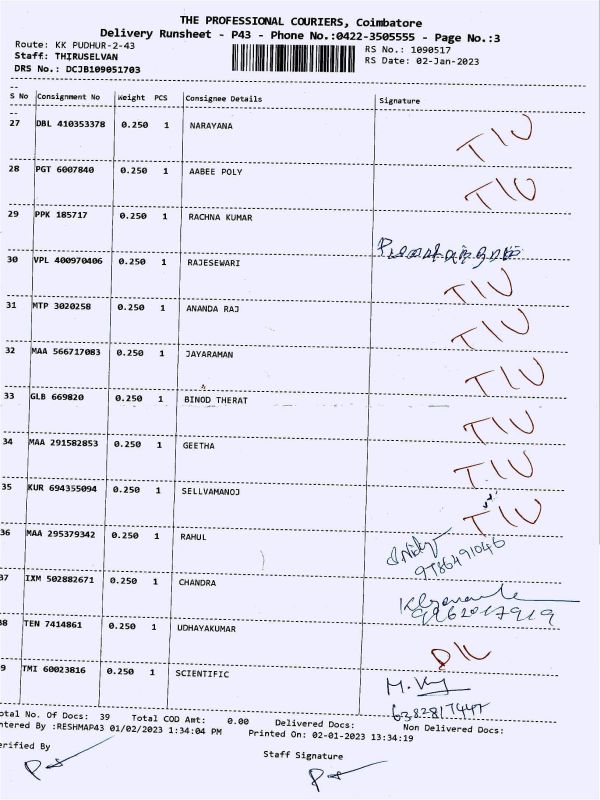 THE PROFESSIONAL COURIERS, Coimbatore
Delivery Runsheet - P43 - Phone No.:0422-3505555 - Page No.:3
Route: KK PUDHUR-2-43 RS No.: 1090517
Staff: THIRUSELVAN RS Date: 02-Jan-2023
DRS No.: DCJB109051703
S No Consignment No Weight PCS Consignee Details Signature
27 DBL 410353378 0.250 1 NARAYANA TIU
28 PGT 6007840 0.250 1 AABEE POLY TIU
29 PPK 185717 0.250 1 RACHNA KUMAR
30 VPL 400970406 0.250 1 RAJESEWARI TIU
31 MTP 3020258 0.250 1 ANANDA RAJ TIU
32 MAA 566717083 0.250 1 JAYARAMAN TIU
33 GLB 669820 0.250 1 BINOD THERAT TIU
34 MAA 291582853 0.250 1 GEETHA TIU
35 KUR 694355094 0.250 1 SELLVAMANOJ TIU
36 MAA 295379342 0.250 1 RAHUL
9786491046
37 IXM 502882671 0.250 1 CHANDRA
9962017919
38 TEN 7414861 0.250 1 UDHAYAKUMAR
39 TMI 60023816 0.250 1 SCIENTIFIC
6382817447
otal No. Of Docs: 39 Total COD Amt: 0.00 Delivered Docs: Non Delivered Docs:
ntered By :RESHMAP43 01/02/2023 1:34:04 PM Printed On: 02-01-2023 13:34:19
erified By Staff Signature